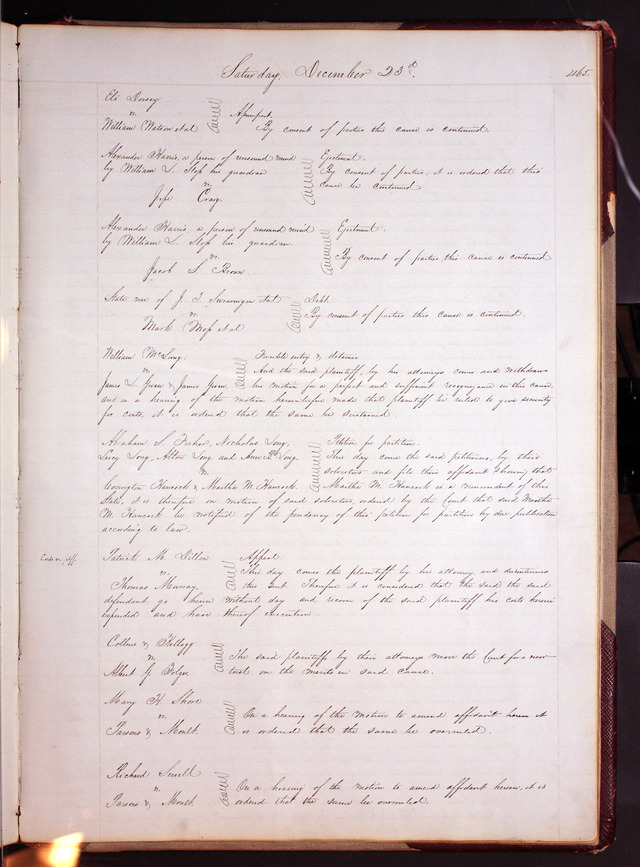 Saturday December 23d. 465.
Eli Dorsey
vs.
William Watson et al
Assumpsit.
By consent of parties this cause is continued.
Alexander Harris, a person of unsound mind
by William L. Slop his guardian
vs
Jesse Craig.
Ejectment.
By consent of parties, it is ordered that this
cause be continued
Alexander Harris, a person of unsound mind
by William L. Slop his guardian.
vs.
Jacob S. Brown.
Ejectment.
By consent of parties this cause is continued
State use of J. T. Swearingen et al
vs.
Mark Moss et al
Debt.
By consent of parties this cause is continued.
William McLung.
vs.
James L. Green & James Green
Forcible entry & detainer
And the said plaintiff, by his attorneys comes and withdraws
his motion for a perfect and sufficient recognizance in this cause,
and on a hearing of the motion heretofore made that plaintiff be ruled to give security
for costs, it is ordered that the same be sustained
Abraham S. Fisher, Nicholas Long,
Lucy Long, Alton Long and Ann B. Long.
vs
Covington Hancock & Martha M. Hancock
Petition for partition.
This day come the said petitioners, by their
solicitors and file their affidavit showing that
Martha M. Hancock is a nonresident of this
State, it is therefore on motion of said solicitors ordered by the Court that said Martha
M. Hancock be notified of the pendency of this petition for partition by due publication
according to law.
Patrick M. Dillon
vs.
Thomas Murray
Appeal
This day comes the plaintiff by his attorney and discontinues
his suit. Therefore it is considered that the said the said
defendant go hence without day and recover of the said plaintiff his costs herein
expended and have thereof execution.
Collins & Kellogg
vs
Albert G.
The said plaintiffs by their attorneys move the Court for a new
trial on the merits in said cause.
Mary H. Shore
vs.
Parsons & Moult.
On a hearing of the motion to amend affidavit herein it
is ordered that the same be overruled.
Richard Sewell
vs.
Parsons & Moult
On a hearing of the motion to amend affidavit herein, it is
ordered that the same be overruled.